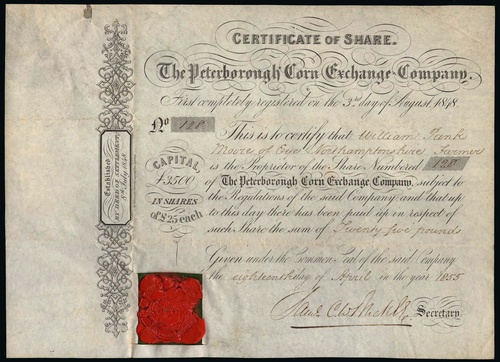 CERTIFICATE OF SHARE.
The Peterborough Corn Exchange Company.
First completely registered on the 3rd day of August 1848.
No 128
This is to certify that William
Moore of Northamptonshire Farmer
is the Proprietor of the Share Numbered 128
of The Peterborough Corn Exchange Company, subject to
the Regulations of the said Company and that up
to this day there has been paid up in respect of
such Share the sum of Twenty five pounds
Given under the Common Seal of the said Company
the eighteenth day of April in the year 1855
Secretary
CAPITAL,
£3500
IN SHARES
OF £25 each
Established
BY DEED OF SETTLEMENT,
8th July 1848.